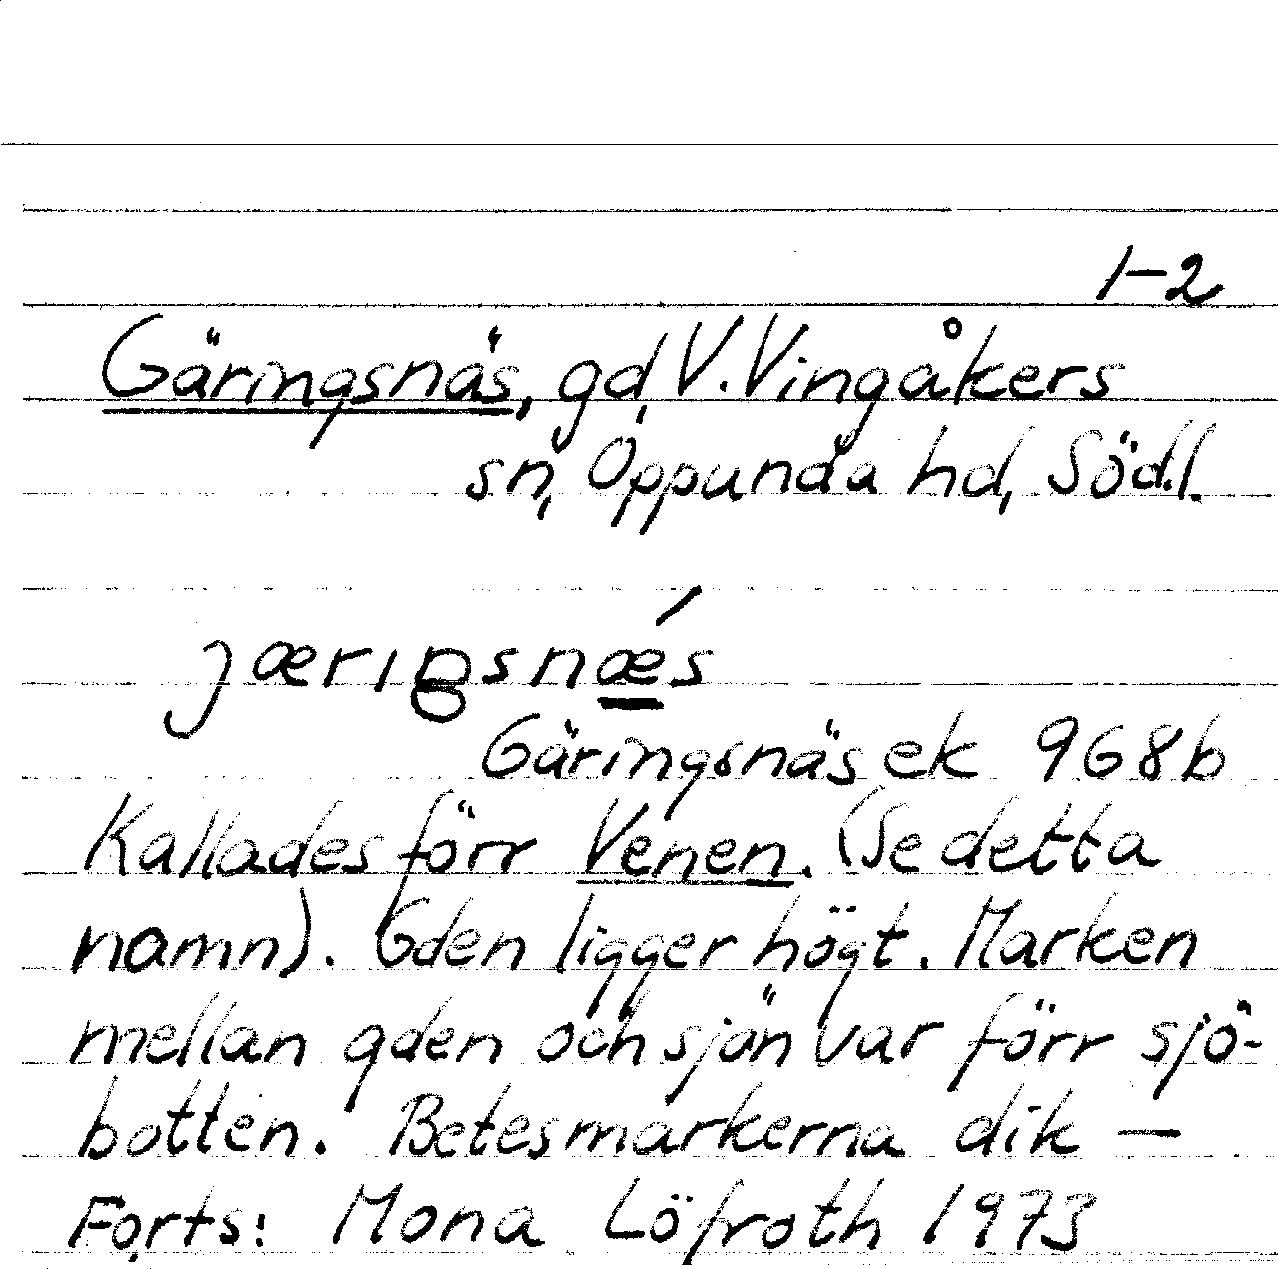 1-2
Gäringsnäs, gd, V. Vingåkers
sn, Oppunda hd, Södl.
jæriŋsnǽs
Gäringsnäs ek 968b
Kallades förr Venen. (Se detta
namn). Gden ligger högt. Marken
mellan gden och sjön var förr sjö-
botten. Betesmarkerna dik —
Forts: Mona Löfroth 1973